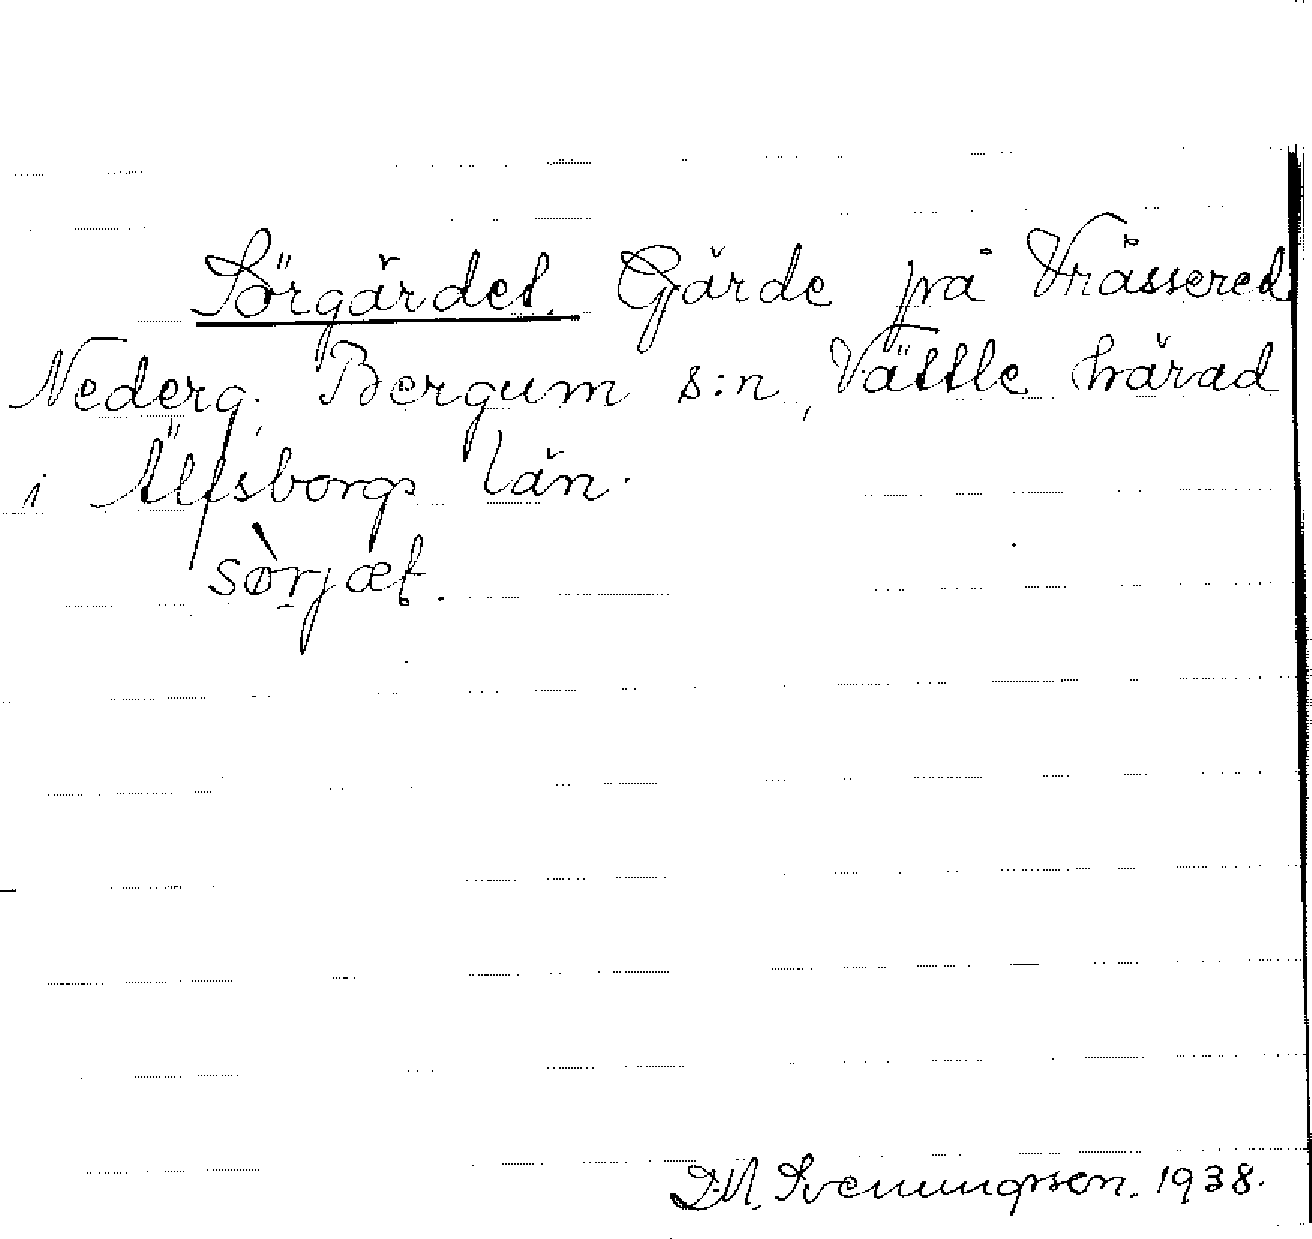 Sörgärdet. Gärde på Vråssered
Nederg. Bergum s:n, Vättle härad
i Älfsborgs län.
sø̀rjæt.
D.M. Svenungsson. 1938.